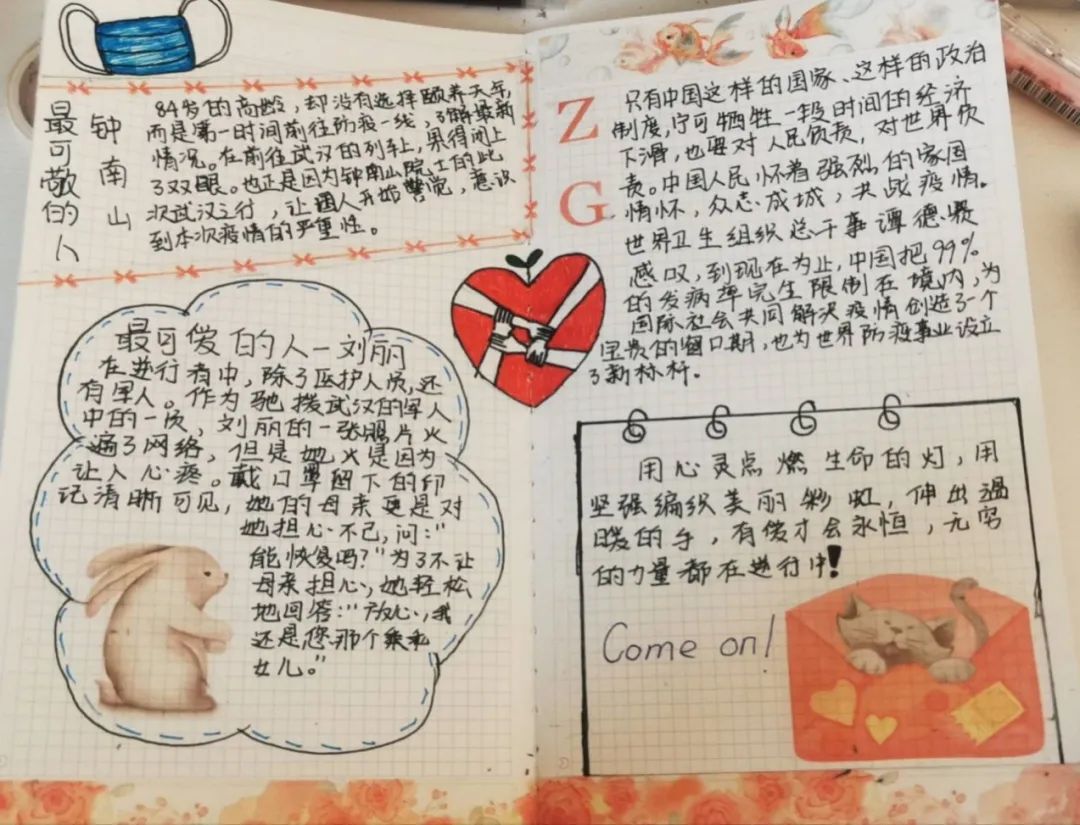 最可敬的人
钟南山
84岁的高龄，却没有选择颐养天年
而是第一时间前往防疫一线，了解最新
情况。在前往武汉的列车上，累得闭上
了双眼。也正是因为钟南山院士的此
次武汉之行，让国人开始警觉，意识
到本次疫情的严重性。
最可爱的人一刘丽
在逆行者中，除了医护人员，还
有军人。作为驰援武汉的军人
中的一员，刘丽的一张照片火
遍了网络，但是她火是因为
让人心疼。戴口罩留下的印
记清晰可见，她的母亲更是对
她担心不已，问："
能恢复吗？"为了不让
母亲担心，她轻松
地回答："放心，我
还是您那个乖乖
女儿。"
Z
G
只有中国这样的国家、这样的政治
制度，宁可牺牲一段时间的经济
下滑，也要对人民负责，对世界负
责。中国人民怀着强烈的家国
情怀，众志成城，共战疫情。
世界卫生组织总干事谭德赛
感叹，到现在为止，中国把99%
的发病率完全限制在境内，为
国际社会共同解决疫情创造了一个
宝贵的窗口期，也为世界防疫事业设立
了新标杆。
用心灵点燃生命的灯，用
坚强编织美丽彩虹，伸出温
暖的手，有爱才会永恒，无穷
的力量都在进行中！
Come on!